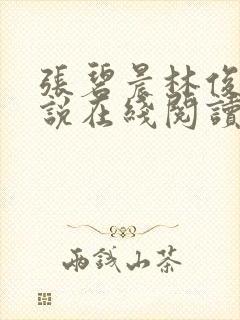 張碧晨林俊
説在綫閱讀
兩錢山茶